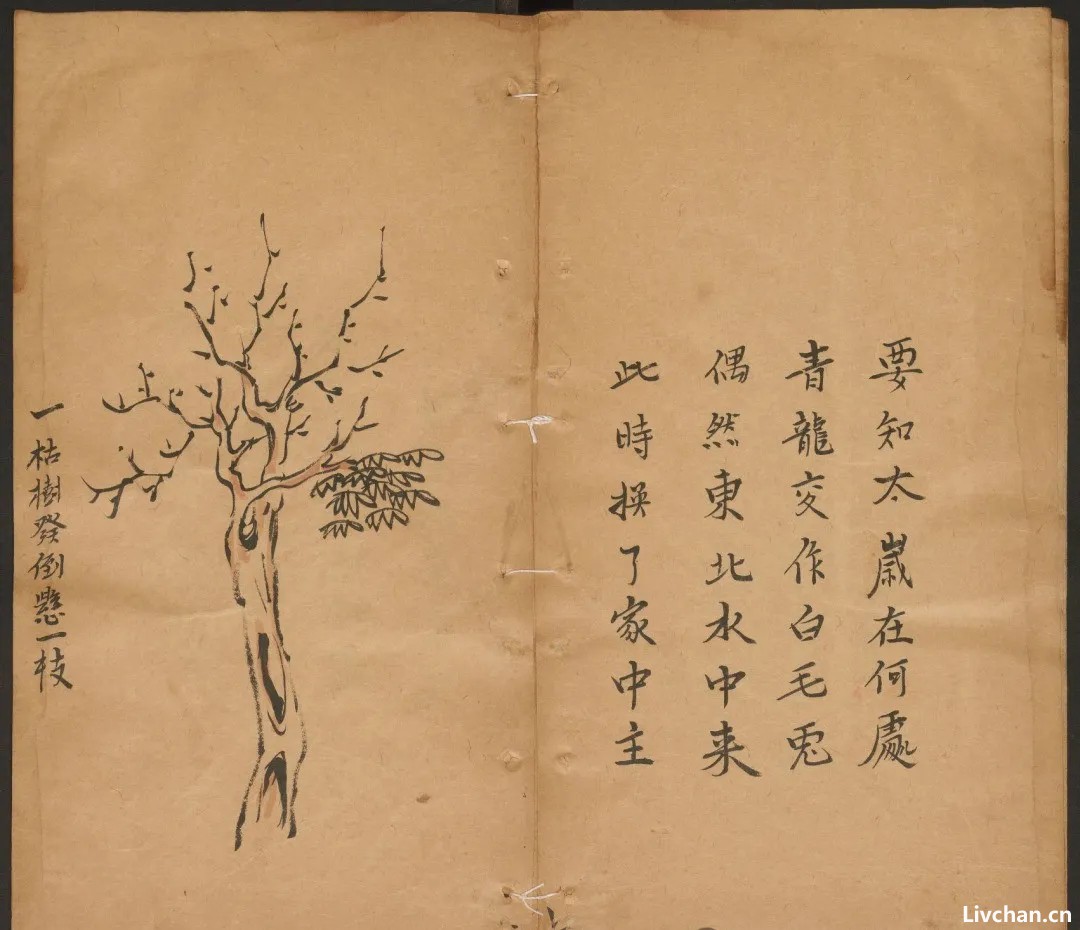 要知太歲在何處
青龍交作白毛兎
偶然東北水中来
此時換了家中主
一枯樹發倒懸一枝
Livchan.cn